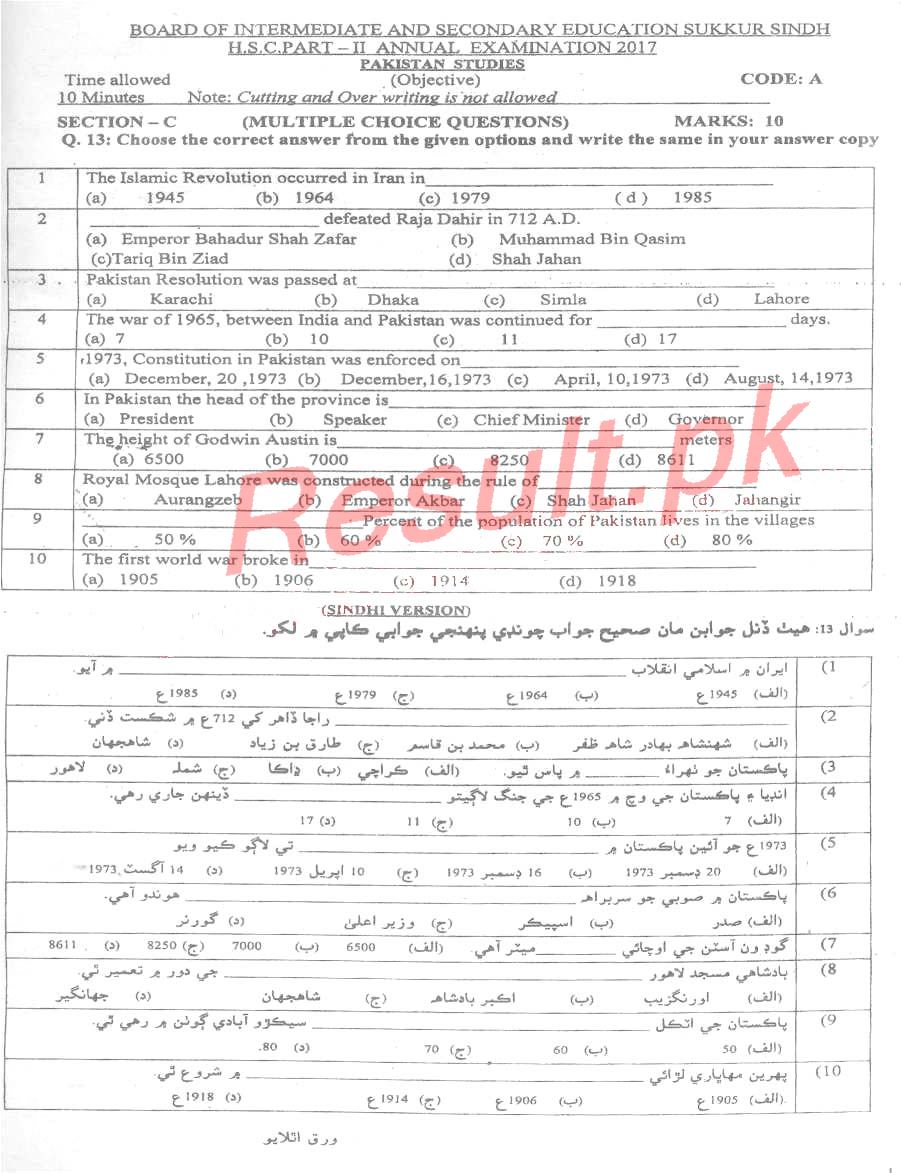 BOARD OF INTERMEDIATE AND SECONDARY EDUCATION SUKKUR SINDH
H.S.C.PART – II ANNUAL EXAMINATION 2017
PAKISTAN STUDIES
Time allowed (Objective) CODE: A
10 Minutes Note: Cutting and Over writing is not allowed
SECTION – C (MULTIPLE CHOICE QUESTIONS) MARKS: 10
Q. 13: Choose the correct answer from the given options and write the same in your answer copy
1 The Islamic Revolution occurred in Iran in
(a) 1945 (b) 1964 (c) 1979 (d) 1985
2 defeated Raja Dahir in 712 A.D.
(a) Emperor Bahadur Shah Zafar (b) Muhammad Bin Qasim
(c)Tariq Bin Ziad (d) Shah Jahan
3 Pakistan Resolution was passed at
(a) Karachi (b) Dhaka (c) Simla (d) Lahore
4 The war of 1965, between India and Pakistan was continued for days.
(a) 7 (b) 10 (c) 11 (d) 17
5 1973, Constitution in Pakistan was enforced on
(a) December, 20 ,1973 (b) December,16,1973 (c) April, 10,1973 (d) August, 14,1973
6 In Pakistan the head of the province is
(a) President (b) Speaker (c) Chief Minister (d) Governor
7 The height of Godwin Austin is meters
(a) 6500 (b) 7000 (c) 8250 (d) 8611
8 Royal Mosque Lahore was constructed during the rule of
(a) Aurangzeb (b) Emperor Akbar (c) Shah Jahan (d) Jahangir
9 Percent of the population of Pakistan lives in the villages
(a) 50 % (b) 60 % (c) 70 % (d) 80 %
10 The first world war broke in
(a) 1905 (b) 1906 (c) 1914 (d) 1918
Result.pk
(SINDHI VERSION)
سوال 13: هيٺ ڏنل جوابن مان صحيح جواب چونڊي پنهنجي جوابي ڪاپي ۾ لکو.
(1 ايران ۾ اسلامي انقلاب ۾ آيو.
(الف) 1945ع (ب) 1964ع (ج) 1979ع (د) 1985ع
(2 راجا ڏاهر کي 712ع ۾ شڪست ڏني.
(الف) شهنشاهه بهادر شاهه ظفر (ب) محمد بن قاسم (ج) طارق بن زياد (د) شاهجهان
(3 پاڪستان جو ٺهراءُ ۾ پاس ٿيو. (الف) ڪراچي (ب) ڍاڪا (ج) شمله (د) لاهور
(4 انڊيا ۽ پاڪستان جي وچ ۾ 1965ع جي جنگ لاڳيتو ڏينهن جاري رهي.
(الف) 7 (ب) 10 (ج) 11 (د) 17
(5 1973ع جو آئين پاڪستان ۾ تي لاڳو ڪيو ويو
(الف) 20 ڊسمبر 1973 (ب) 16 ڊسمبر 1973 (ج) 10 اپريل 1973 (د) 14 آگسٽ 1973
(6 پاڪستان ۾ صوبي جو سربراهه هوندو آهي.
(الف) صدر (ب) اسپيڪر (ج) وزير اعليٰ (د) گورنر
(7 گوڊ ون آسٽن جي اوچائي ميٽر آهي. (الف) 6500 (ب) 7000 (ج) 8250 (د) 8611
(8 بادشاهي مسجد لاهور جي دور ۾ تعمير ٿي.
(الف) اورنگزيب (ب) اڪبر بادشاهه (ج) شاهجهان (د) جهانگير
(9 پاڪستان جي اٽڪل سيڪڙو آبادي ڳوٺن ۾ رهي ٿي.
(الف) 50 (ب) 60 (ج) 70 (د) 80.
(10 پهرين مهاڀاري لڙائي ۾ شروع ٿي.
(الف) 1905ع (ب) 1906ع (ج) 1914ع (د) 1918ع
ورق اٿلايو